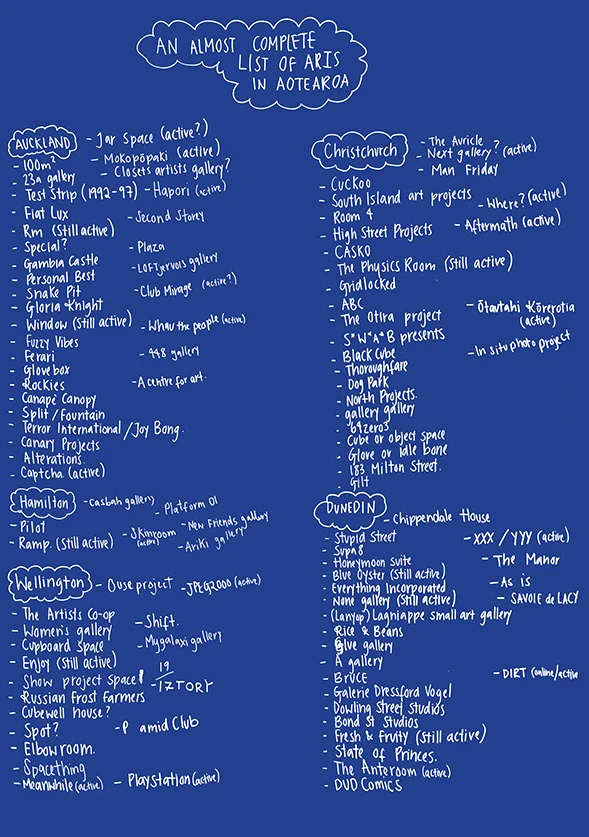 AN ALMOST COMPLETE
LIST OF ARIS
IN AOTEAROA
AUCKLAND
- Jar Space (active?)
- Mokopōpaki (active)
- Closets artists gallery?
- 100m²
- 23a gallery
- Test Strip (1992-97)
- Hapori (active)
- Fiat Lux
- Second Storey
- Rm (Still active)
- Special?
- Plaza
- Gambia Castle
- LOFTjervois gallery
- Personal Best
- Snake Pit
- Club Mirage (active?)
- Gloria Knight
- Window (Still active)
- Whau the people (active)
- Fuzzy Vibes
- Ferari
- 448 gallery
- Glovebox
- Rockies
- A centre for art.
- Canapé Canopy
- Split / Fountain
- Terror International / Joy Bong.
- Canary Projects
- Alterations.
- Captcha (active)
Hamilton
- Casbah gallery
- Platform 01
- Pilot
- New Friends gallery
- Ramp. (Still active)
- Skinroom (active)
- Ariki gallery
Wellington
- Ouse project
- JPEG2000 (active)
- The Artists Co-op
- Shift.
- Women's gallery
- Cupboard Space
- Mygalaxi gallery
- Enjoy (Still active)
- Show project space!
19
- 1ZTORY
- Russian Frost Farmers
- Cubewell house?
- Spot?
- P amid Club
- Elbowroom.
- Spacething
- Meanwhile (active)
- Playstation (active)
Christchurch
- The Auricle
- Next gallery? (active)
- Man Friday
- Cuckoo
- South Island art projects
- Where? (active)
- Room 4
- High Street Projects
- Aftermath (active)
- CASKO
- The Physics Room (Still active)
- Gridlocked
- ABC
- Ōtautahi Kōrerotia
(active)
- The Otira project
- S*W*A*B presents
- In situ photo project
- Black Cube
- Thoroughfare
- Dog Park
- North Projects.
- gallery gallery
- 64zero3
- Cube or object space
- Glove or idle bone
- 183 Milton Street.
- Gilt
DUNEDIN
- Chippendale House
- Stupid Street
- XXX / YYY (active)
- Supa8
- Honeymoon suite
- The Manor
- Blue Oyster (Still active)
- Everything Incorporated
- As is
- None gallery (Still active)
- SAVOIE de LACY
- (Lanyop) Lagniappe small art gallery
- Rice & Beans
- Glue gallery
- A gallery
- Bruce
- DIRT (online/active
- Galerie Dressford Vogel
- Dowling Street Studios
- Bond St Studios
- Fresh & Fruity (Still active)
- State of Princes.
- The Anteroom (active)
- DVD Comics